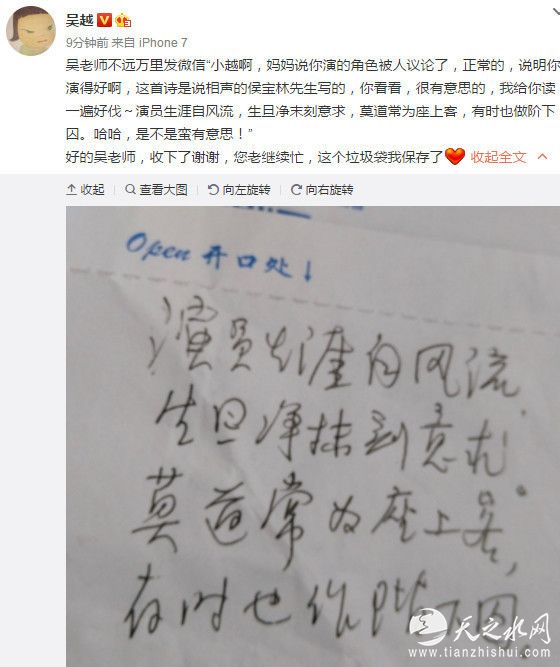 吴越
9分钟前 来自 iPhone 7
吴老师不远万里发微信“小越啊，妈妈说你演的角色被人议论了，正常的，说明你
演得好啊，这首诗是说相声的侯宝林先生写的，你看看，很有意思的，我给你读
一遍好伐～演员生涯自风流，生旦净末刻意求，莫道常为座上客，有时也做阶下
囚。哈哈，是不是蛮有意思！”
好的吴老师，收下了谢谢，您老继续忙，这个垃圾袋我保存了 收起全文
收起 查看大图 向左旋转 向右旋转
Open 开口处↓
演员生涯自风流，
生旦净抹刻意求。
莫道常为座上客，
有时也作阶下囚
天之水网
www.tianzhishui.com